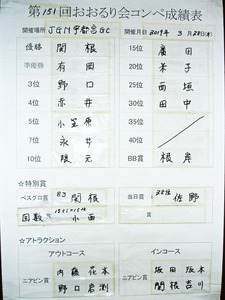 第151回おおるり会コンペ成績表
開催場所 JGM宇都宮GC 開催月日 2019年3月28日(木)
優勝 関根 15位 廣田
準優勝 有岡 20位 米子
3位 野口 25位 西垣
4位 赤井 30位 田中
5位 小笠原 35位
7位 永井 40位
10位 隈元 BB賞 根岸
☆特別賞
ベスグロ賞 83 関根 当日賞 28位 佐野
回数賞 小西
☆アトラクション
アウトコース インコース
ニアピン賞 内藤 花本 ニアピン賞 坂田 阪本
野口 岩渕 関根 吉川